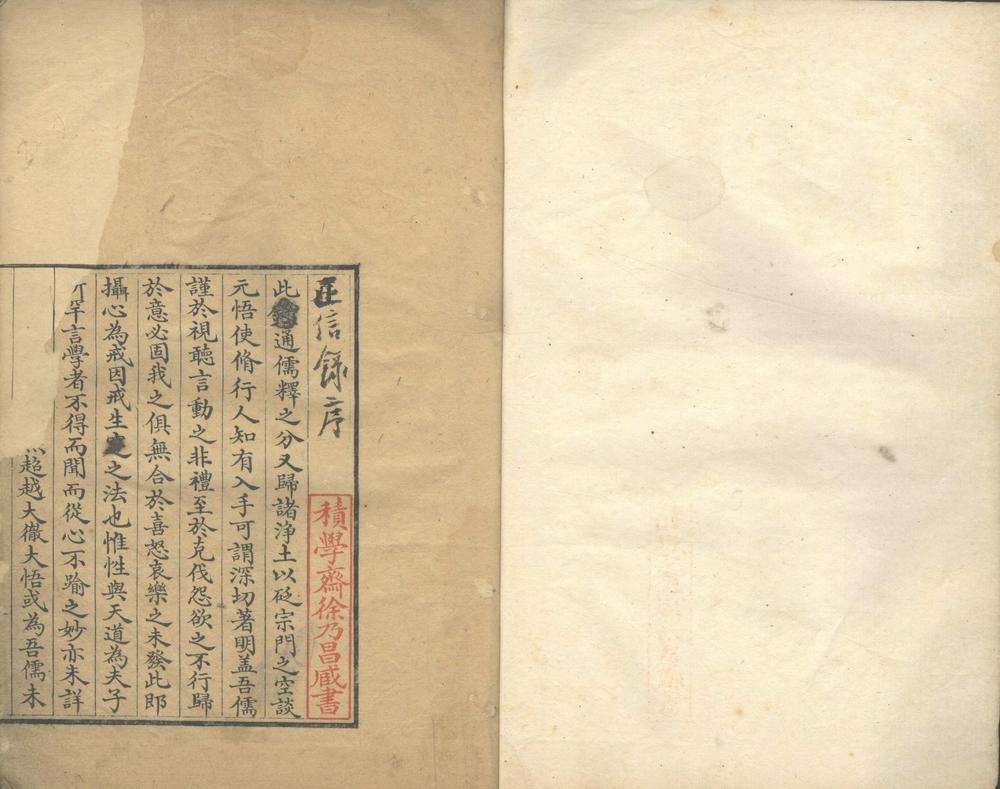 正信錄序
積學齋徐乃昌臧書
此錄通儒釋之分又歸諸淨土以砭宗門之空談
元悟使脩行人知有入手可謂深切著明盖吾儒
謹於視聽言動之非禮至於克伐怨欲之不行歸
於意必固我之俱無合於喜怒哀樂之未發此即
攝心為戒因戒生定之法也惟性與天道為夫子
罕言學者不得而聞而從心不踰之妙亦未詳
超越大徹大悟或為吾儒未